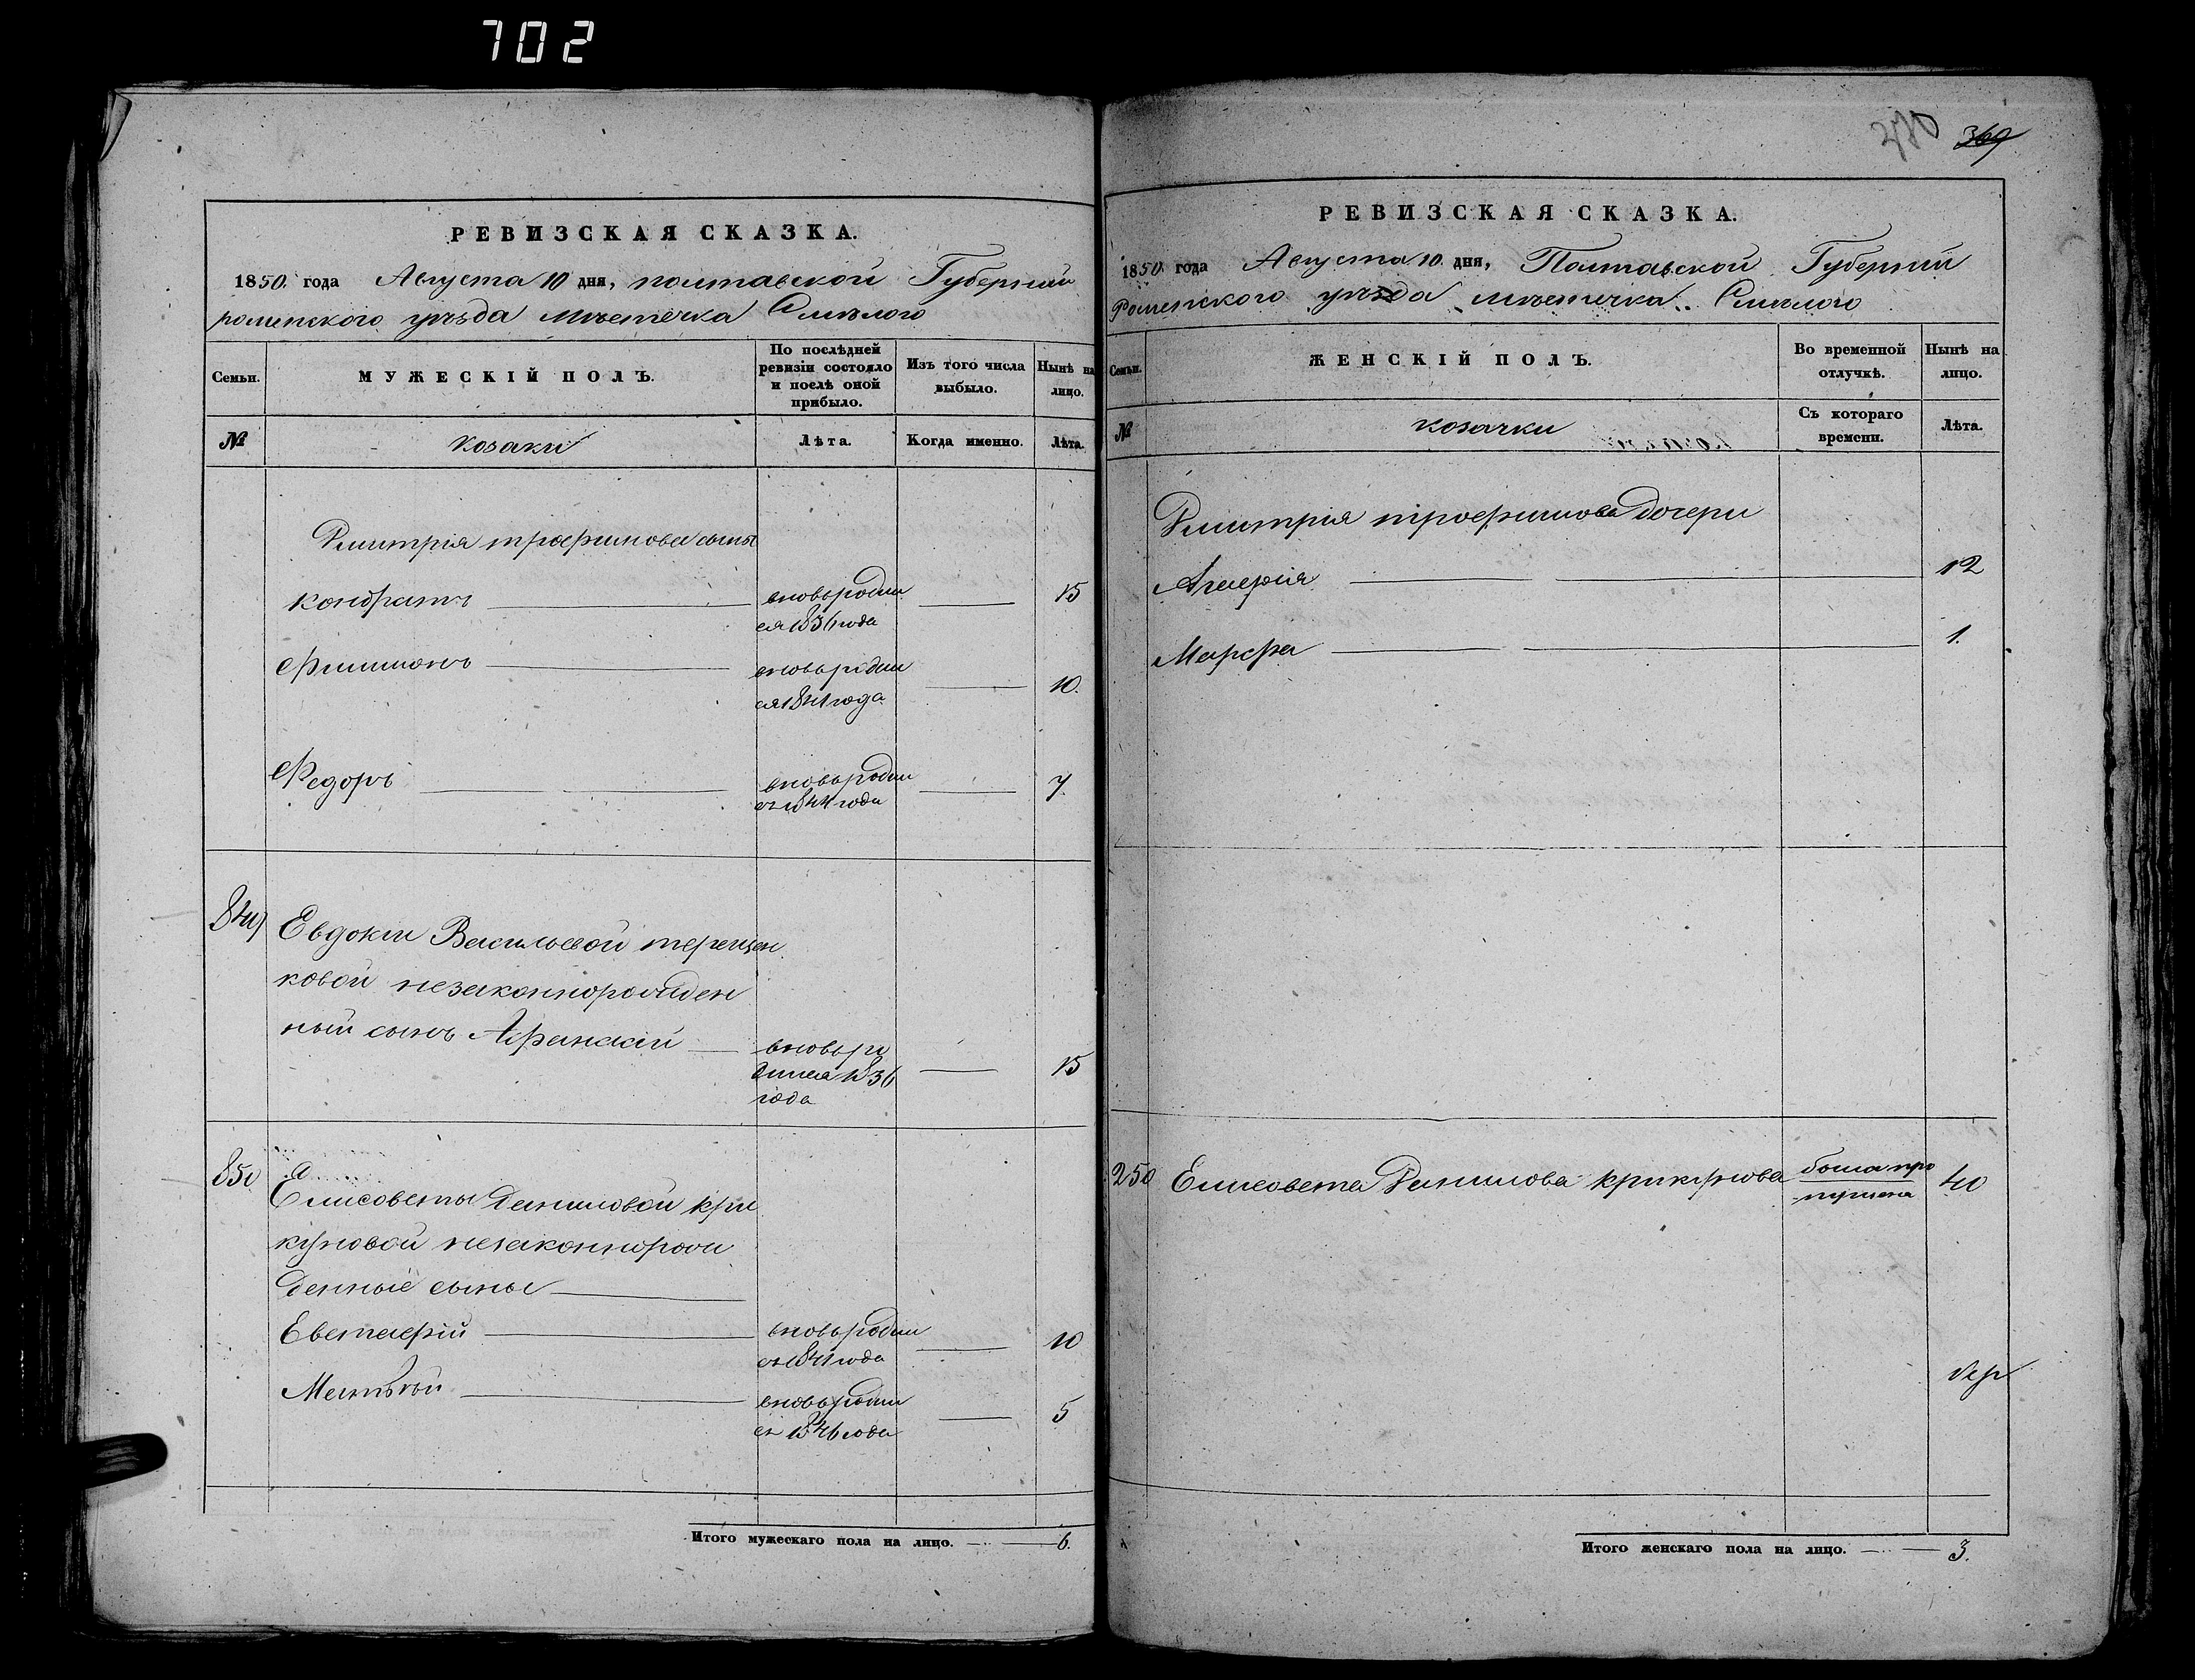 702
280 369
РЕВИЗСКАЯ СКАЗКА.
1850. года Августа 10 дня, полтавской Губерніи
роменского уѣзда мѣстечка Смѣлого
Семьи. МУЖЕСКІЙ ПОЛЪ. По послѣдней ревизіи состояло и послѣ оной прибыло. Изъ того числа выбыло. Нынѣ на лицо.
№ козаки Лѣта. Когда именно. Лѣта.
Дмитрія трофимова сыны
Кондратъ вновь родил 15
ся 1836 года
Филимонъ вновь родил 10.
ся 1841 года
Федоръ вновь родил 7.
ся 1844 года
849 Евдокіи Васильевой терещен
ковой незаконнорожден
ный сынъ Афанасій вновь ро 15
дился 1836
года
850 Елисоветы Даниловой кри
куновой незаконнорож
денные сыны
Евстафій вновь родил 10
ся 1841 года
Матвѣй вновь родил 5
ся 1846 года
Итого мужескаго пола на лицо. 6.
РЕВИЗСКАЯ СКАЗКА.
1850. года Августа 10. дня, Полтавской Губерніи
Роменского уѣзда мѣстечка Смѣлого
Семьи. ЖЕНСКІЙ ПОЛЪ. Во временной отлучкѣ. Нынѣ на лицо.
№ козачки Съ котораго времени. Лѣта.
Дмитрія трофимова дочери
Агафія 12
Марфа 1.
250 Елисовета Данилова крикунова была про 40
пущена
Итого женскаго пола на лицо. 3.